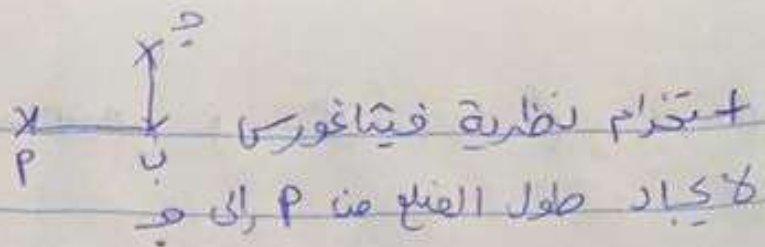 جـ
استخدام نظرية فيثاغورس
م ب
لايجاد طول الضلع من م إلى جـ